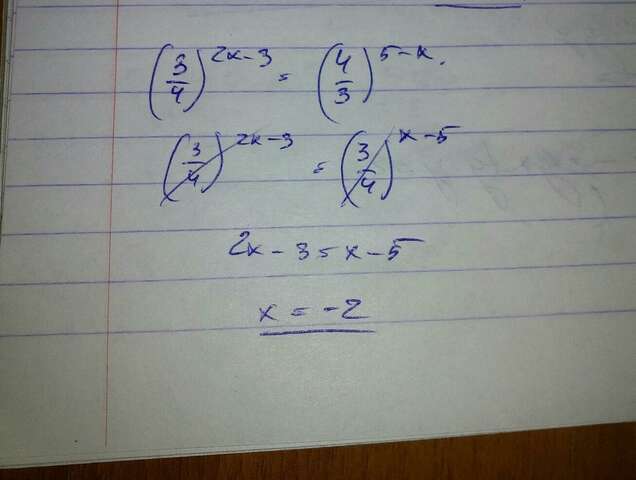 (3/4)^(2x-3) = (4/3)^(5-x).
(3/4)^(2x-3) = (3/4)^(x-5)
2x - 3 = x - 5
x = -2